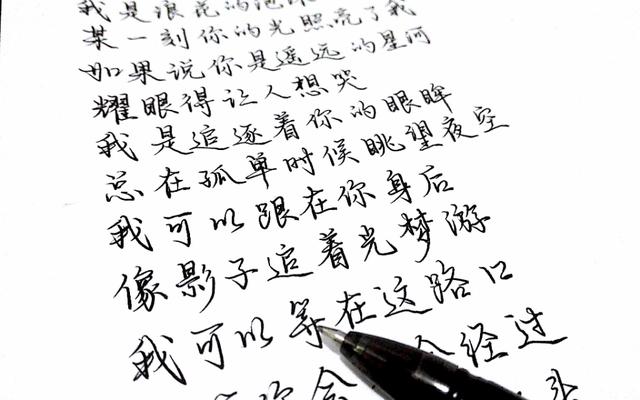 我是浪花的泡沫
某一刻你的光照亮了我
如果说你是遥远的星河
耀眼得让人想哭
我是追逐着你的眼眸
总在孤单时候眺望夜空
我可以跟在你身后
像影子追着光梦游
我可以等在这路口
会经过